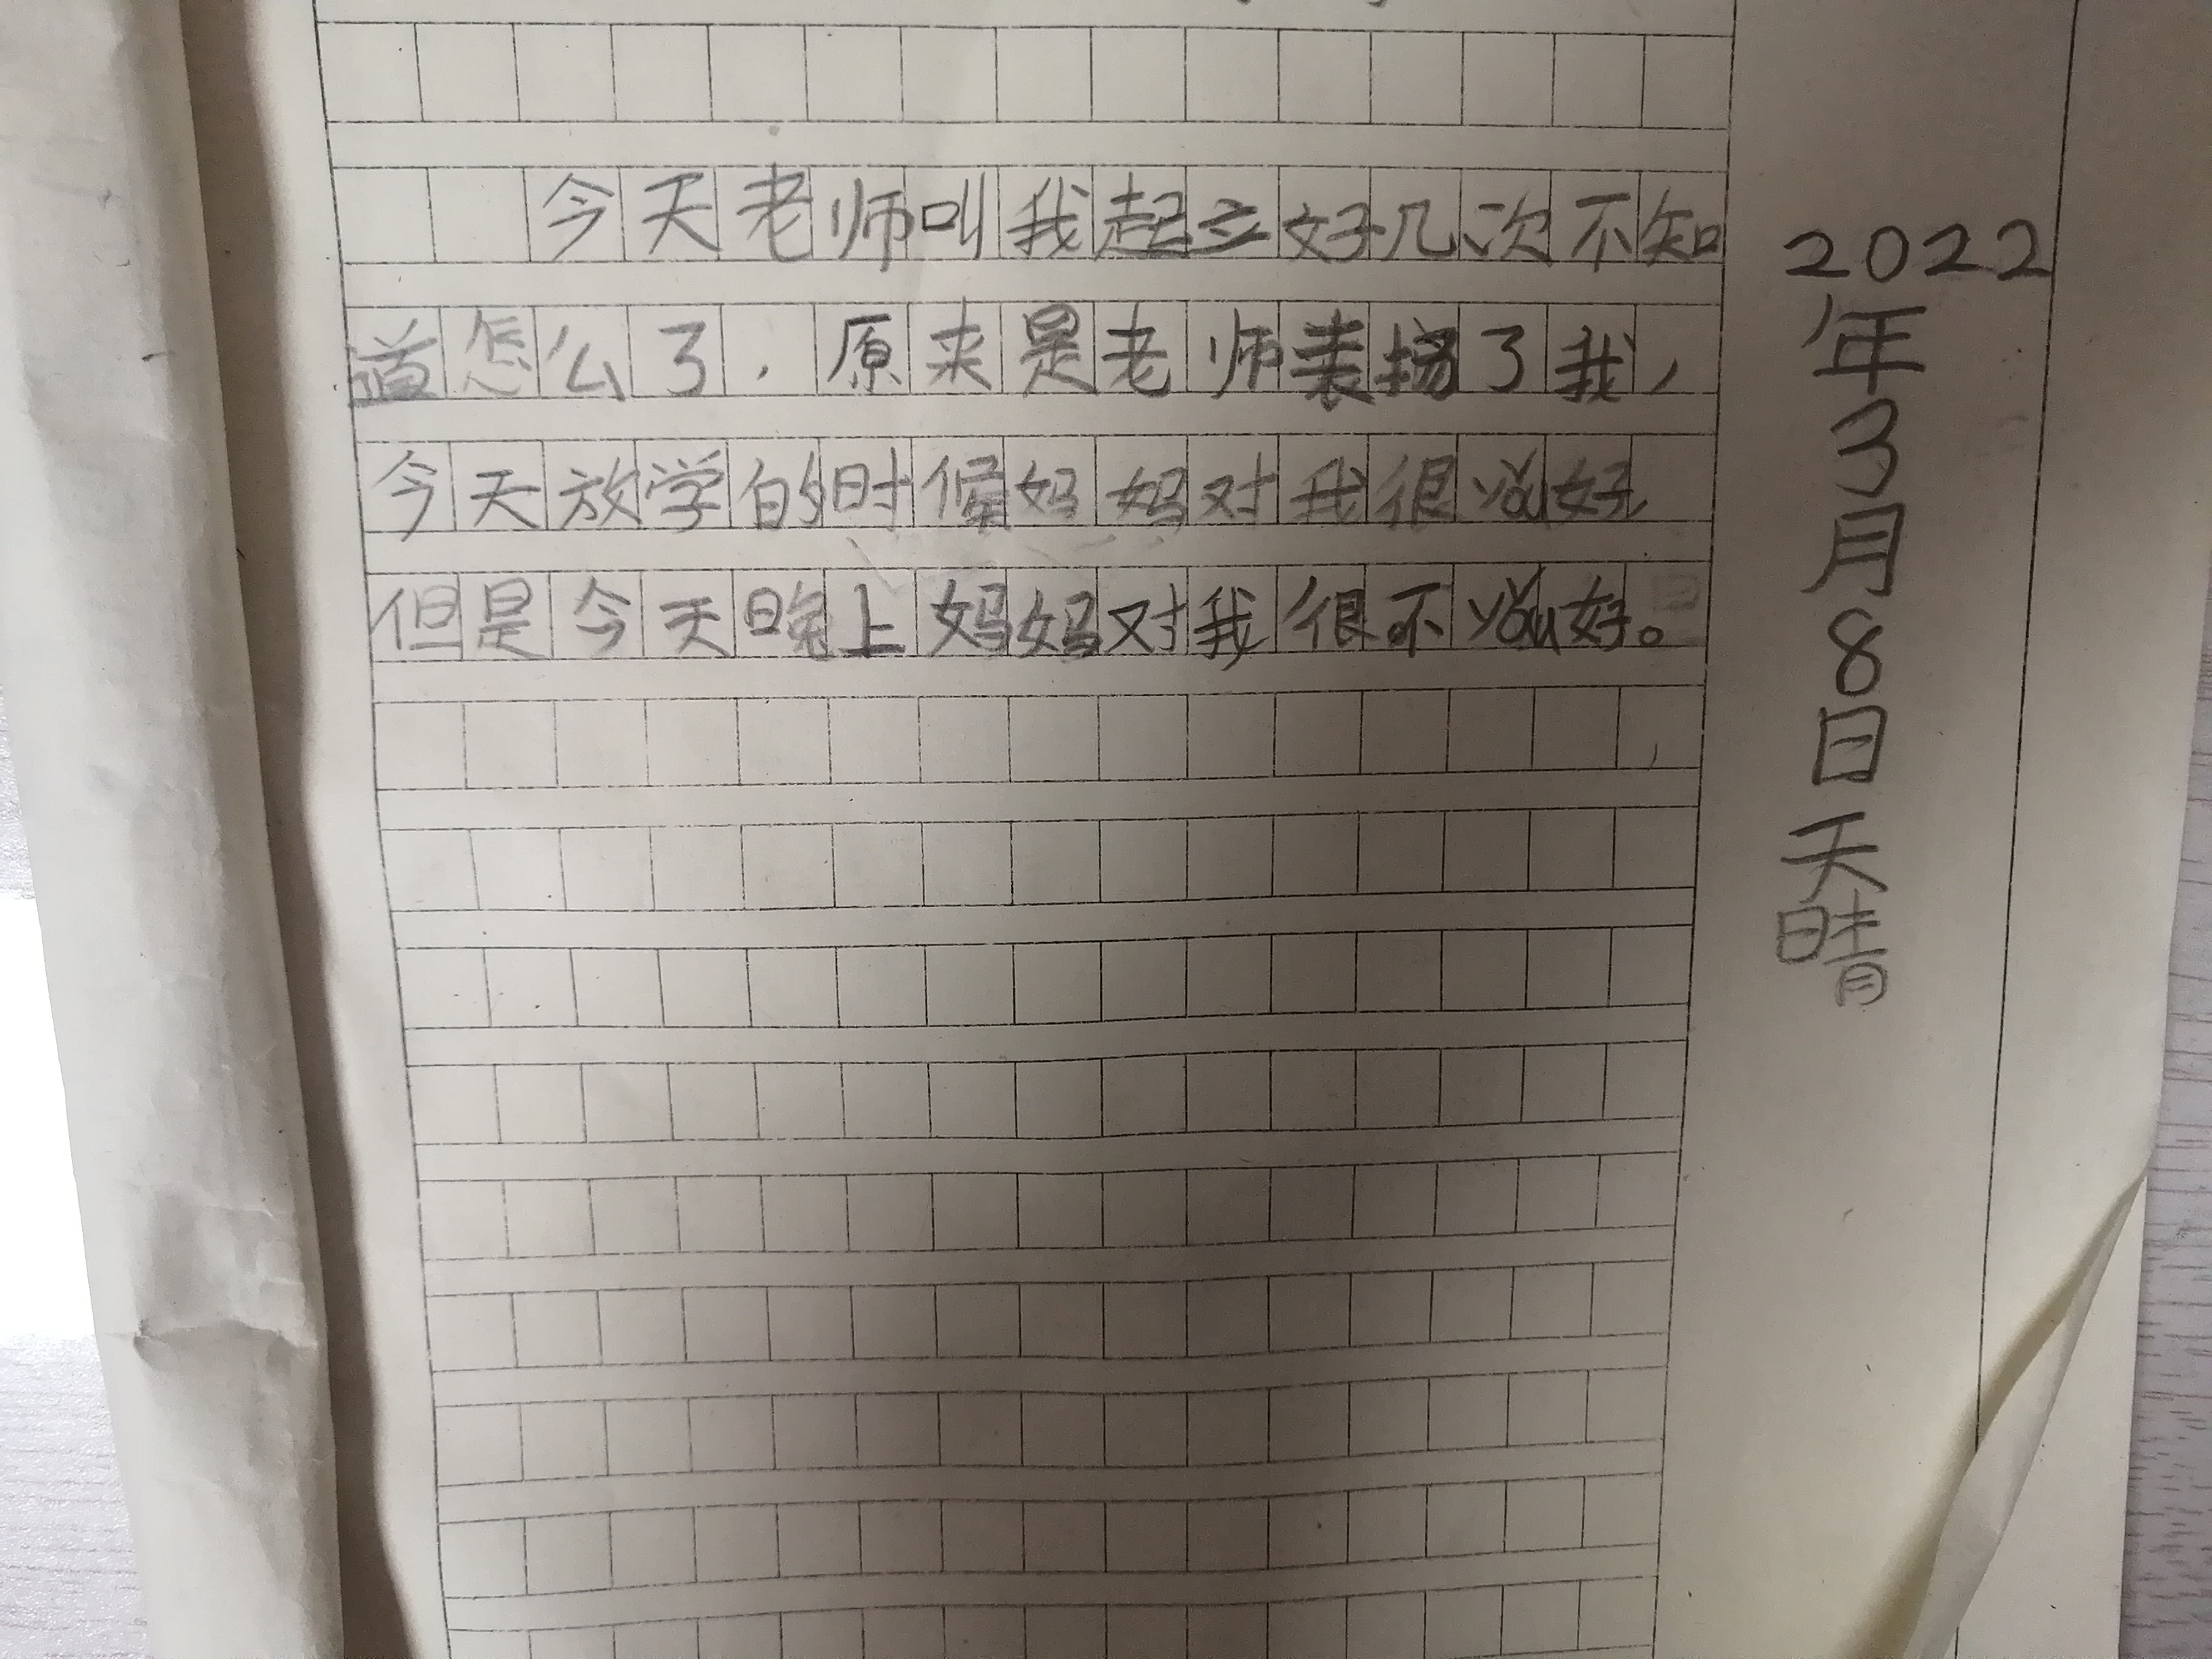 今天老师叫我起立好几次不知
道怎么了，原来是老师表扬了我，
今天放学的时候妈妈对我很yǒu好，
但是今天晚上妈妈对我很不yǒu好。
2022年3月8日天晴